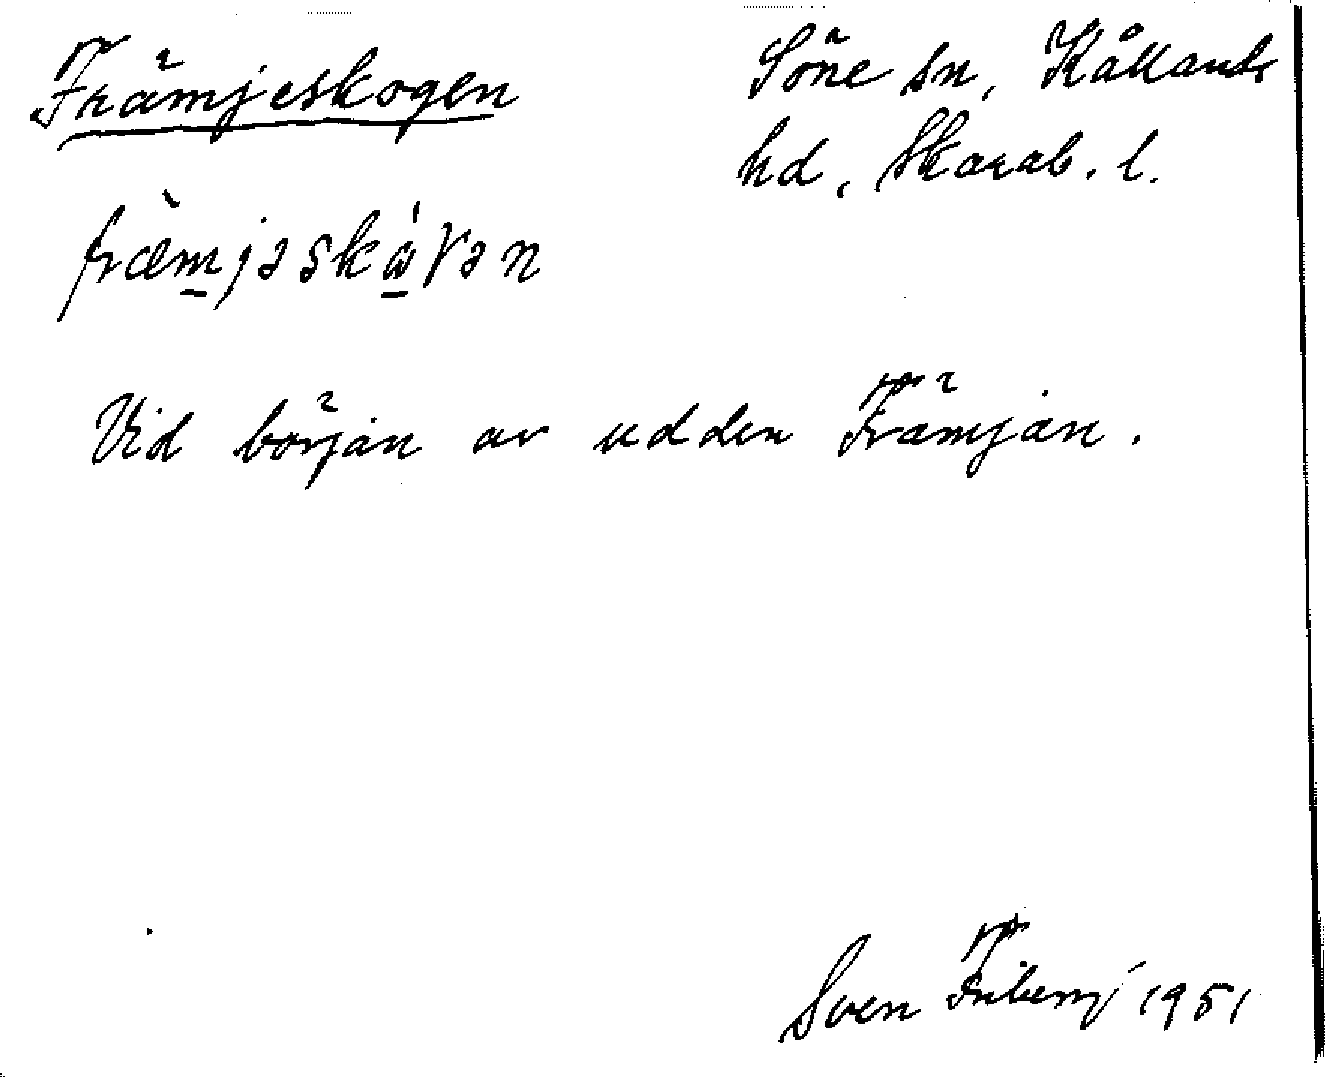 Främjeskogen
Söne sn, Kållands
hd, Skarab. l.
fræ̀mjəskåγən
Vid början av udden Främjan.
Sven Friberg 1951